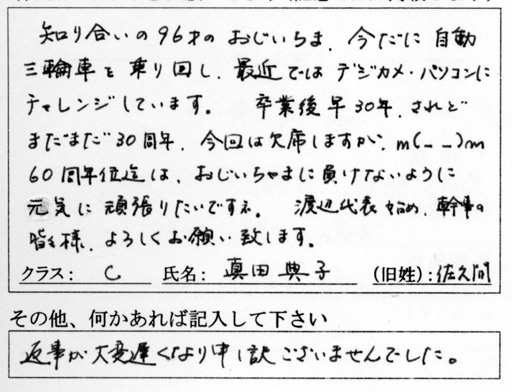 知り合いの96才のおじいちゃま、今だに自動
三輪車を乗り回し、最近ではデジカメ・パソコンに
チャレンジしています。 卒業後早30年、されど
まだまだ30周年、今回は欠席しますが、m(_ _)m
60周年位迄は、おじいちゃまに負けないように
元気に頑張りたいですネ。 渡辺代表始め、幹事の
皆々様、よろしくお願い致します。
クラス: C 氏名: 真田典子 (旧姓):佐久間
その他、何かあれば記入して下さい
返事が大変遅くなり申し訳ございませんでした。